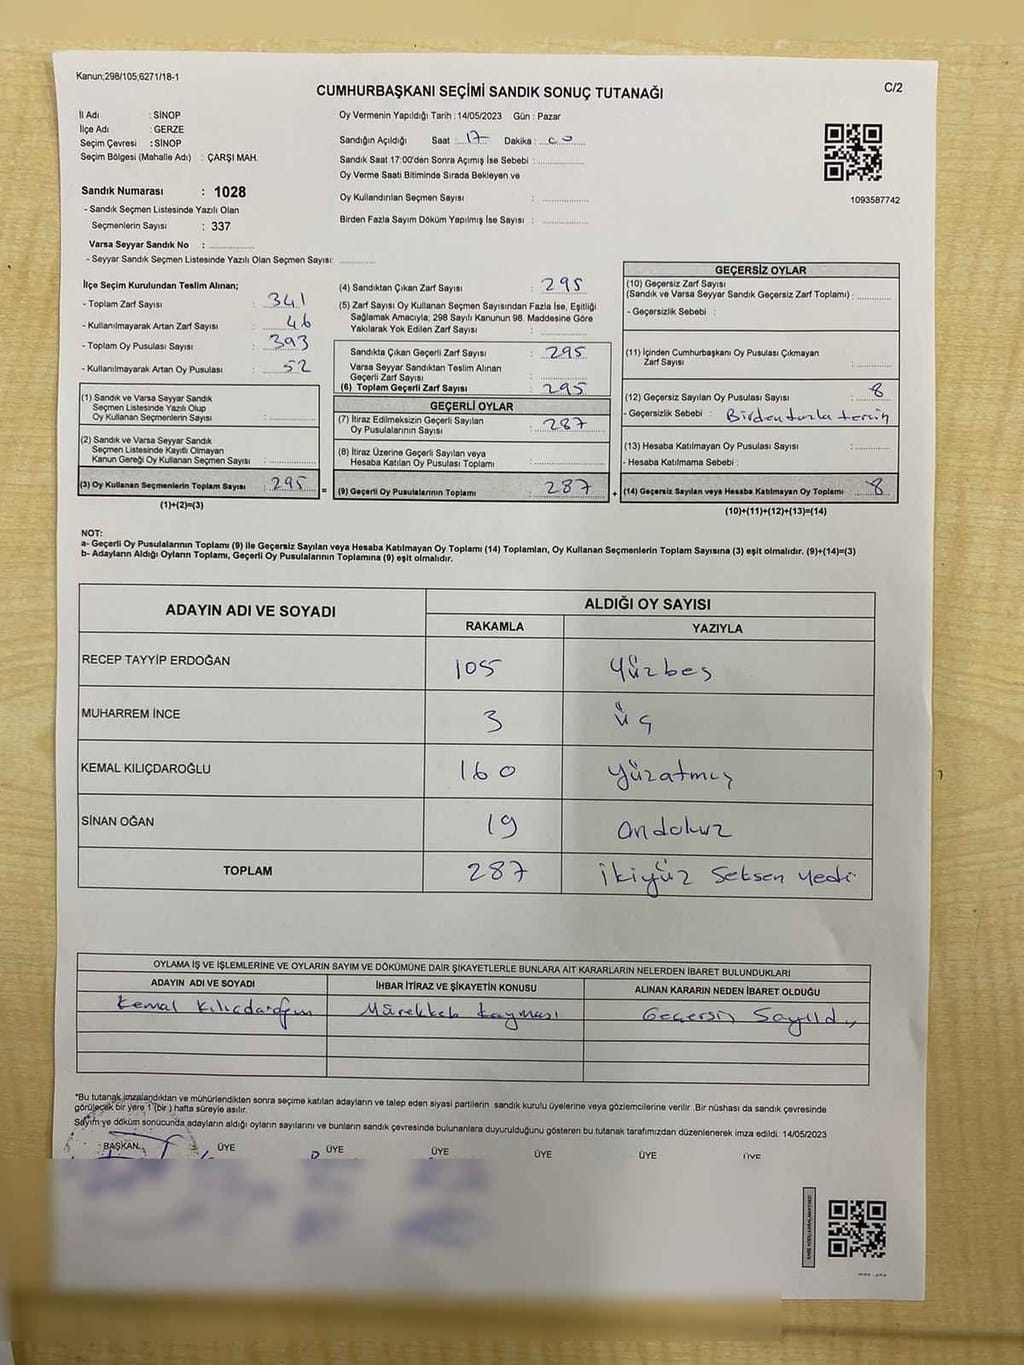 Kanun;298/105;6271/18-1
C/2
CUMHURBAŞKANI SEÇİMİ SANDIK SONUÇ TUTANAĞI
İl Adı : SİNOP
İlçe Adı : GERZE
Seçim Çevresi : SİNOP
Seçim Bölgesi (Mahalle Adı) : ÇARŞI MAH.
Sandık Numarası : 1028
- Sandık Seçmen Listesinde Yazılı Olan
Seçmenlerin Sayısı : 337
Varsa Seyyar Sandık No : ..............
- Seyyar Sandık Seçmen Listesinde Yazılı Olan Seçmen Sayısı: ............
Oy Vermenin Yapıldığı Tarih : 14/05/2023 Gün : Pazar
Sandığın Açıldığı Saat : 17 Dakika : 00
Sandık Saat 17:00'den Sonra Açımış İse Sebebi : ..............
Oy Verme Saati Bitiminde Sırada Bekleyen ve
Oy Kullandırılan Seçmen Sayısı : ..............
Birden Fazla Sayım Döküm Yapılmış İse Sayısı : ..............
1093587742
İlçe Seçim Kurulundan Teslim Alınan;
- Toplam Zarf Sayısı : 341
- Kullanılmayarak Artan Zarf Sayısı : 46
- Toplam Oy Pusulası Sayısı : 393
- Kullanılmayarak Artan Oy Pusulası : 52
(1) Sandık ve Varsa Seyyar Sandık
Seçmen Listesinde Yazılı Olup
Oy Kullanan Seçmenlerin Sayısı : ..............
(2) Sandık ve Varsa Seyyar Sandık
Seçmen Listesinde Kayıtlı Olmayan
Kanun Gereği Oy Kullanan Seçmen Sayısı : ..............
(3) Oy Kullanan Seçmenlerin Toplam Sayısı : 295 =
(1)+(2)=(3)
(4) Sandıktan Çıkan Zarf Sayısı : 295
(5) Zarf Sayısı Oy Kullanan Seçmen Sayısından Fazla İse, Eşitliği
Sağlamak Amacıyla; 298 Sayılı Kanunun 98. Maddesine Göre
Yakılarak Yok Edilen Zarf Sayısı : ..............
Sandıkta Çıkan Geçerli Zarf Sayısı : 295
Varsa Seyyar Sandıktan Teslim Alınan
Geçerli Zarf Sayısı : ..............
(6) Toplam Geçerli Zarf Sayısı : 295
GEÇERLİ OYLAR
(7) İtiraz Edilmeksizin Geçerli Sayılan
Oy Pusulalarının Sayısı : 287
(8) İtiraz Üzerine Geçerli Sayılan veya
Hesaba Katılan Oy Pusulası Toplamı : ..............
(9) Geçerli Oy Pusulalarının Toplamı : 287 +
GEÇERSİZ OYLAR
(10) Geçersiz Zarf Sayısı
(Sandık ve Varsa Seyyar Sandık Geçersiz Zarf Toplamı) : ............
- Geçersizlik Sebebi :
(11) İçinden Cumhurbaşkanı Oy Pusulası Çıkmayan
Zarf Sayısı : ............
(12) Geçersiz Sayılan Oy Pusulası Sayısı : 8
- Geçersizlik Sebebi : Birden fazla tercih
(13) Hesaba Katılmayan Oy Pusulası Sayısı : ............
- Hesaba Katılmama Sebebi :
(14) Geçersiz Sayılan veya Hesaba Katılmayan Oy Toplamı : 8
(10)+(11)+(12)+(13)=(14)
NOT:
a- Geçerli Oy Pusulalarının Toplamı (9) ile Geçersiz Sayılan veya Hesaba Katılmayan Oy Toplamı (14) Toplamları, Oy Kullanan Seçmenlerin Toplam Sayısına (3) eşit olmalıdır. (9)+(14)=(3)
b- Adayların Aldığı Oyların Toplamı, Geçerli Oy Pusulalarının Toplamına (9) eşit olmalıdır.
ADAYIN ADI VE SOYADI
ALDIĞI OY SAYISI
RAKAMLA YAZIYLA
RECEP TAYYİP ERDOĞAN 105 Yüzbeş
MUHARREM İNCE 3 Üç
KEMAL KILIÇDAROĞLU 160 yüzatmış
SİNAN OĞAN 19 ondokuz
TOPLAM 287 İkiyüz Seksen yedi
OYLAMA İŞ VE İŞLEMLERİNE VE OYLARIN SAYIM VE DÖKÜMÜNE DAİR ŞİKAYETLERLE BUNLARA AİT KARARLARIN NELERDEN İBARET BULUNDUKLARI
ADAYIN ADI VE SOYADI İHBAR İTİRAZ VE ŞİKAYETİN KONUSU ALINAN KARARIN NEDEN İBARET OLDUĞU
Kemal Kılıçdaroğlu Mürekkeb kayması Geçersiz Sayıldı
*Bu tutanak imzalandıktan ve mühürlendikten sonra seçime katılan adayların ve talep eden siyasi partilerin sandık kurulu üyelerine veya gözlemcilerine verilir .Bir nüshası da sandık çevresinde
görülecek bir yere 1 (bir ) hafta süreyle asılır.
Sayım ve döküm sonucunda adayların aldığı oyların sayılarını ve bunların sandık çevresinde bulunanlara duyurulduğunu gösteren bu tutanak tarafımızdan düzenlenerek imza edildi. 14/05/2023
BAŞKAN ÜYE ÜYE ÜYE ÜYE ÜYE ÜYE